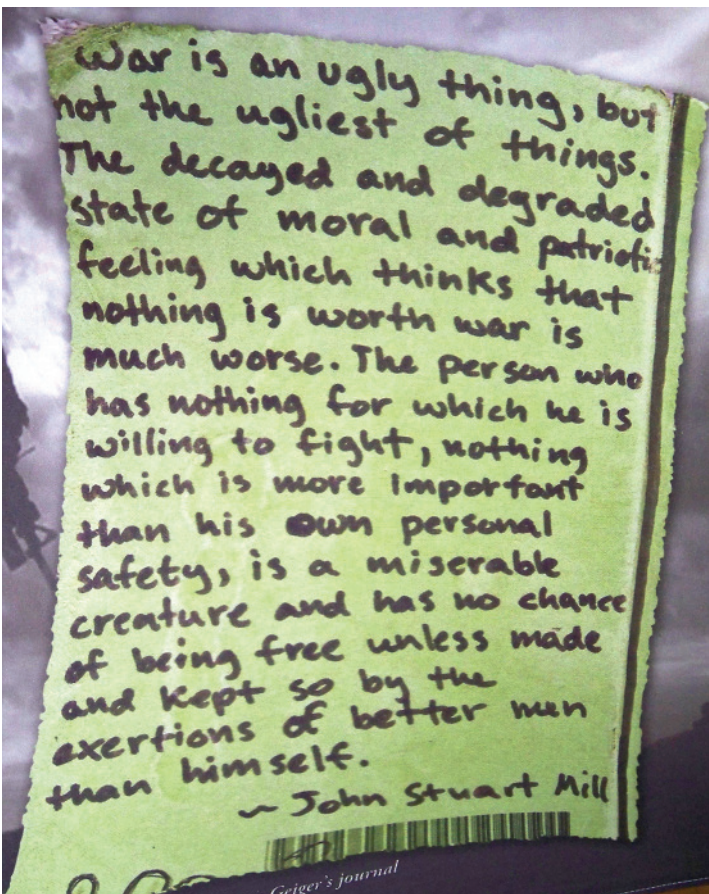 war is an ugly thing, but
not the ugliest of things.
The decayed and degraded
state of moral and patriotic
feeling which thinks that
nothing is worth war is
much worse. The person who
has nothing for which he is
willing to fight, nothing
which is more important
than his own personal
safety, is a miserable
creature and has no chance
of being free unless made
and kept so by the
exertions of better men
than himself.
~ John Stuart Mill
Geiger's journal